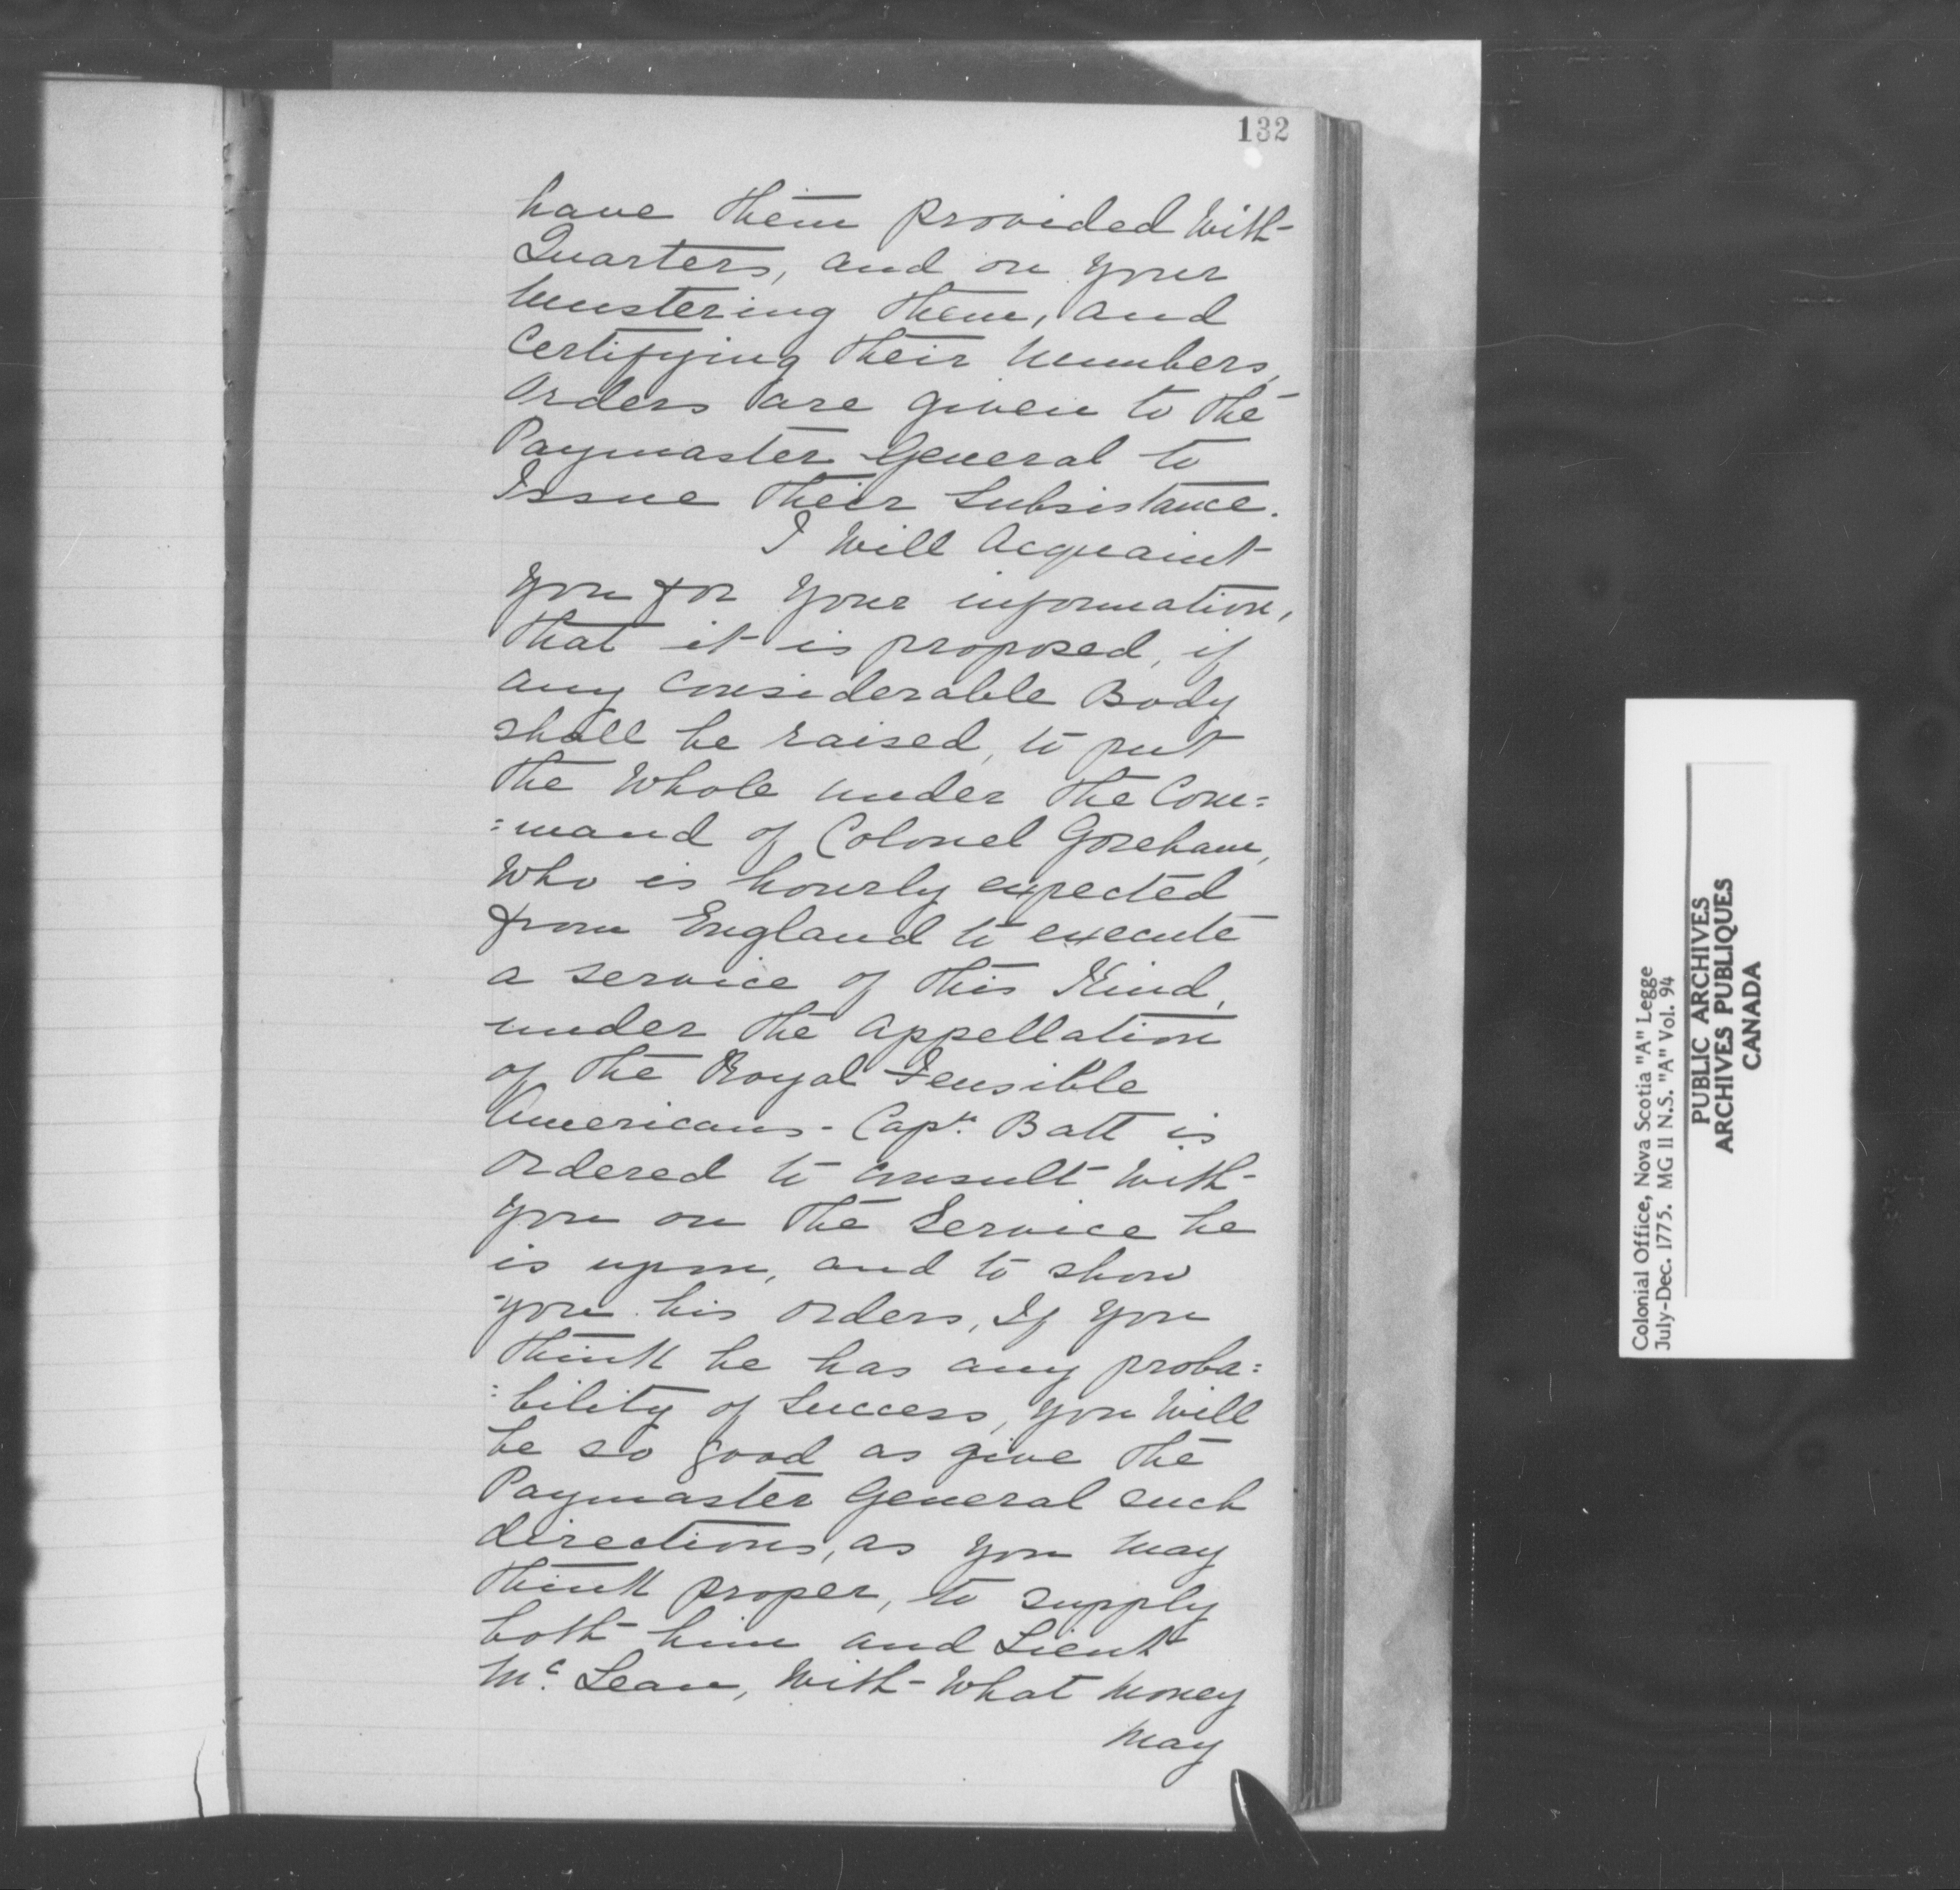 132
have them provided With
Quarters, and on your
Mustering them, and
Certifying their Numbers,
Orders are given to the
Paymaster General to
Issue their Subsistance.
I Will Acquaint
you for your information,
that it is proposed, if
any considerable Body
shall be raised, to put
the Whole under the Com=
=mand of Colonel Goreham,
Who is hourly expected
from England to execute
a service of this Kind,
under the appellation
of the Royal Fensible
Americans - Capt. Batt is
ordered to consult With
you on the Service he
is upon, and to show
you his orders, If you
think he has any proba=
=bility of Success, you Will
be so good as give the
Paymaster General such
directions, as you may
think proper, to supply
both him and Lieut
Mc. Lean, With What Money
May
Colonial Office, Nova Scotia "A" Legge
July-Dec. 1775. MG 11 N.S. "A" Vol. 94
PUBLIC ARCHIVES
ARCHIVES PUBLIQUES
CANADA